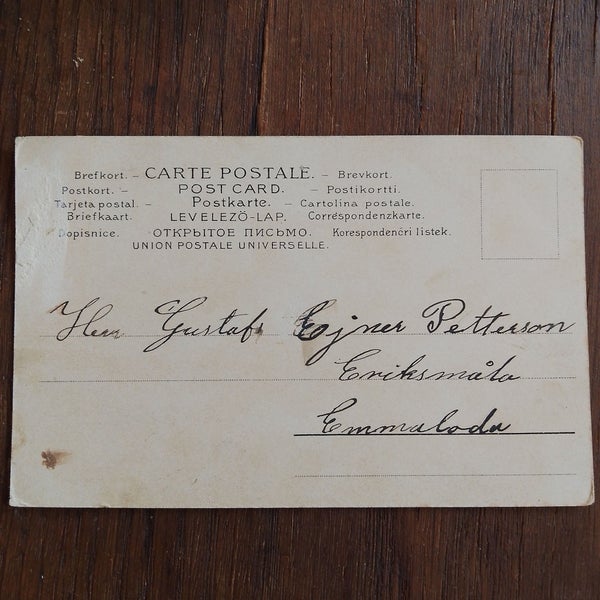 Brefkort. – CARTE POSTALE. – Brevkort.
Postkort. – POST CARD. – Postikortti.
Tarjeta postal. – Postkarte. – Cartolina postale.
Briefkaart. LEVELEZÖ-LAP. Corréspondenzkarte.
Dopisnice. ОТКРЫТОЕ ПИСЬМО. Korespondenčri listek.
UNION POSTALE UNIVERSELLE.
Herr Gustaf Ejner Petterson
Eriksmåla
Emmaboda